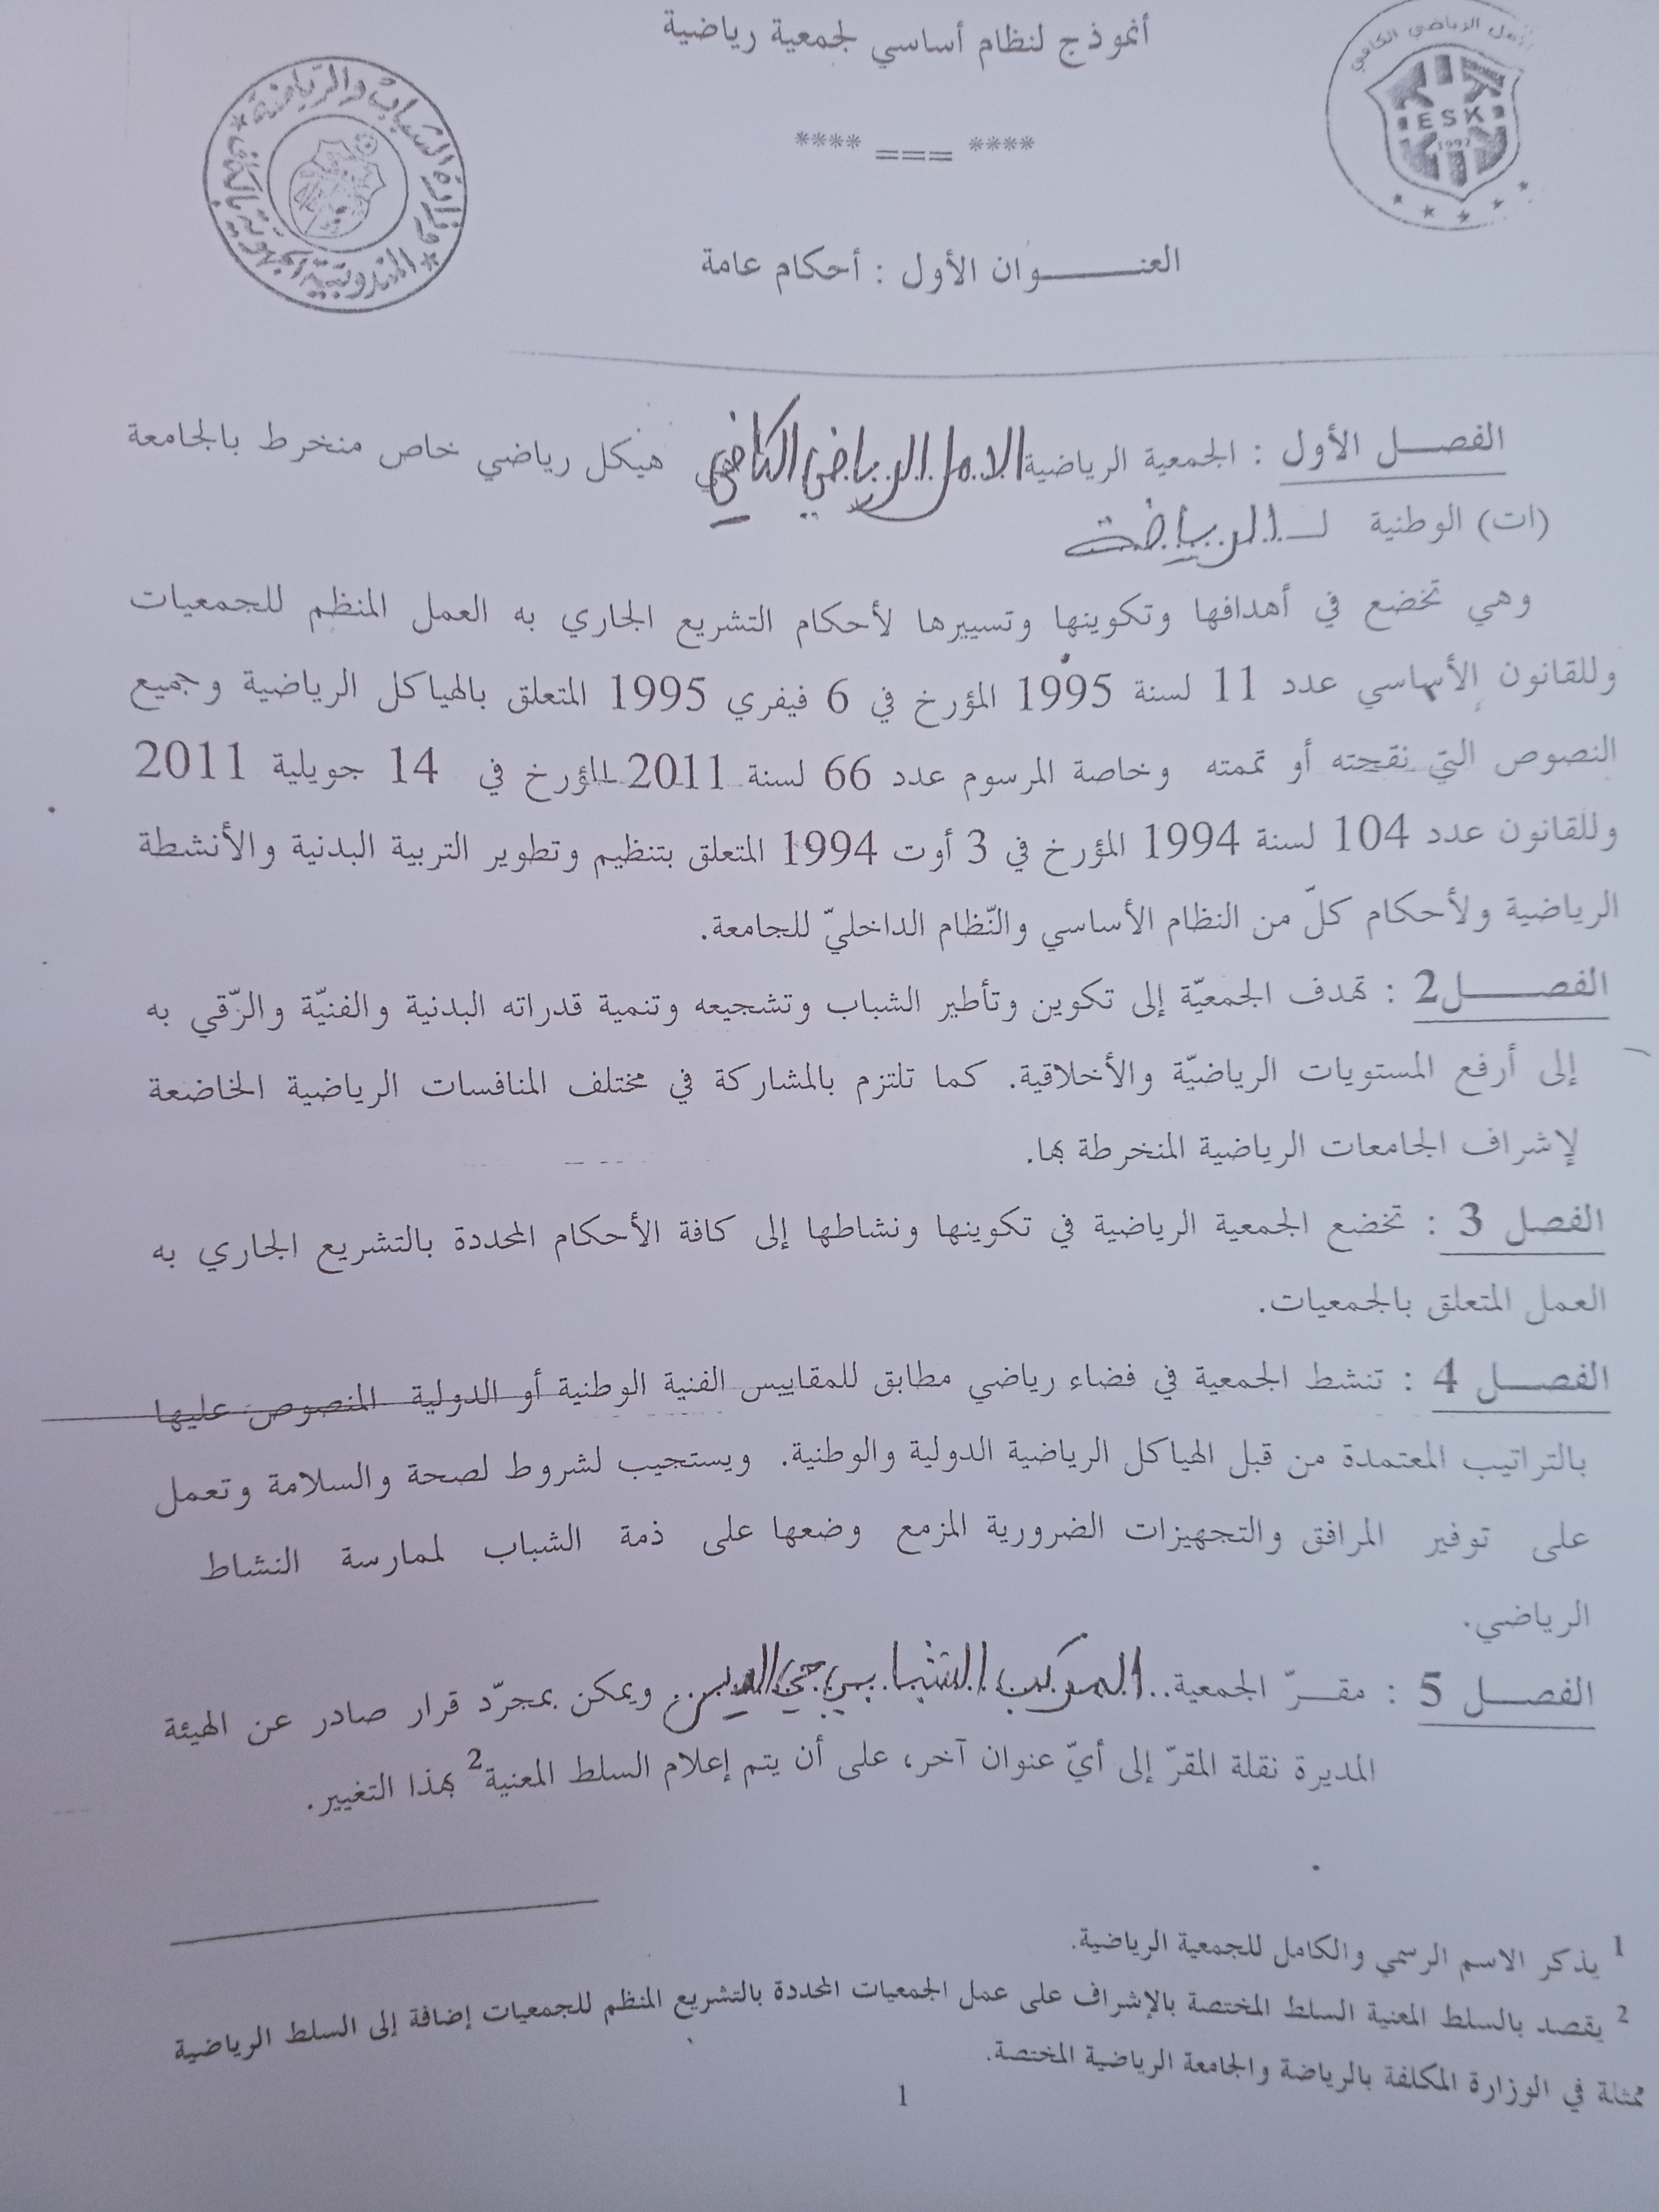 أنموذج لنظام أساسي لجمعية رياضية
الأمل الرياضي الكافي
ESK
1992
وزارة الشباب والرياضة
المندوبية الجهوية بالكاف
**** === ****
العنـــــوان الأول : أحكام عامة
الفصـل الأول : الجمعية الرياضية الامل الرياضي الكافي هيكل رياضي خاص منخرط بالجامعة
(ات) الوطنية لـ الرياضة
وهي تخضع في أهدافها وتكوينها وتسييرها لأحكام التشريع الجاري به العمل المنظم للجمعيات
وللقانون الأساسي عدد 11 لسنة 1995 المؤرخ في 6 فيفري 1995 المتعلق بالهياكل الرياضية وجميع
النصوص التي نقحته أو تممته وخاصة المرسوم عدد 66 لسنة 2011 المؤرخ في 14 جويلية 2011
وللقانون عدد 104 لسنة 1994 المؤرخ في 3 أوت 1994 المتعلق بتنظيم وتطوير التربية البدنية والأنشطة
الرياضية ولأحكام كلّ من النظام الأساسي والنّظام الداخليّ للجامعة.
الفصــــل2 : تهدف الجمعيّة إلى تكوين وتأطير الشباب وتشجيعه وتنمية قدراته البدنية والفنيّة والرّقي به
إلى أرفع المستويات الرياضيّة والأخلاقية. كما تلتزم بالمشاركة في مختلف المنافسات الرياضية الخاضعة
لإشراف الجامعات الرياضية المنخرطة بها.
الفصل 3 : تخضع الجمعية الرياضية في تكوينها ونشاطها إلى كافة الأحكام المحددة بالتشريع الجاري به
العمل المتعلق بالجمعيات.
الفصـــل 4 : تنشط الجمعية في فضاء رياضي مطابق للمقاييس الفنية الوطنية أو الدولية المنصوص عليها
بالتراتيب المعتمدة من قبل الهياكل الرياضية الدولية والوطنية. ويستجيب لشروط لصحة والسلامة وتعمل
على توفير المرافق والتجهيزات الضرورية المزمع وضعها على ذمة الشباب لممارسة النشاط
الرياضي.
الفصـــل 5 : مقــرّ الجمعية المركب الشبابي حي الدير ويمكن بمجرّد قرار صادر عن الهيئة
المديرة نقلة المقرّ إلى أيّ عنوان آخر، على أن يتم إعلام السلط المعنية2 بهذا التغيير.
1 يذكر الاسم الرسمي والكامل للجمعية الرياضية.
2 يقصد بالسلط المعنية السلط المختصة بالإشراف على عمل الجمعيات المحددة بالتشريع المنظم للجمعيات إضافة إلى السلط الرياضية
ممثلة في الوزارة المكلفة بالرياضة والجامعة الرياضية المختصة.
1